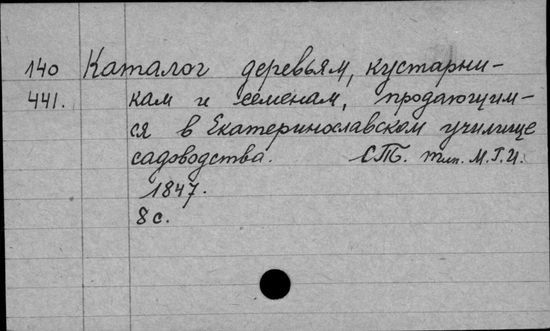 140 Каталог деревьям, кустарни-
441. кам и семенам, продающим-
ся в Екатеринославском училище
садоводства. СПб. тип. М.Г.И.
1847.
8 с.